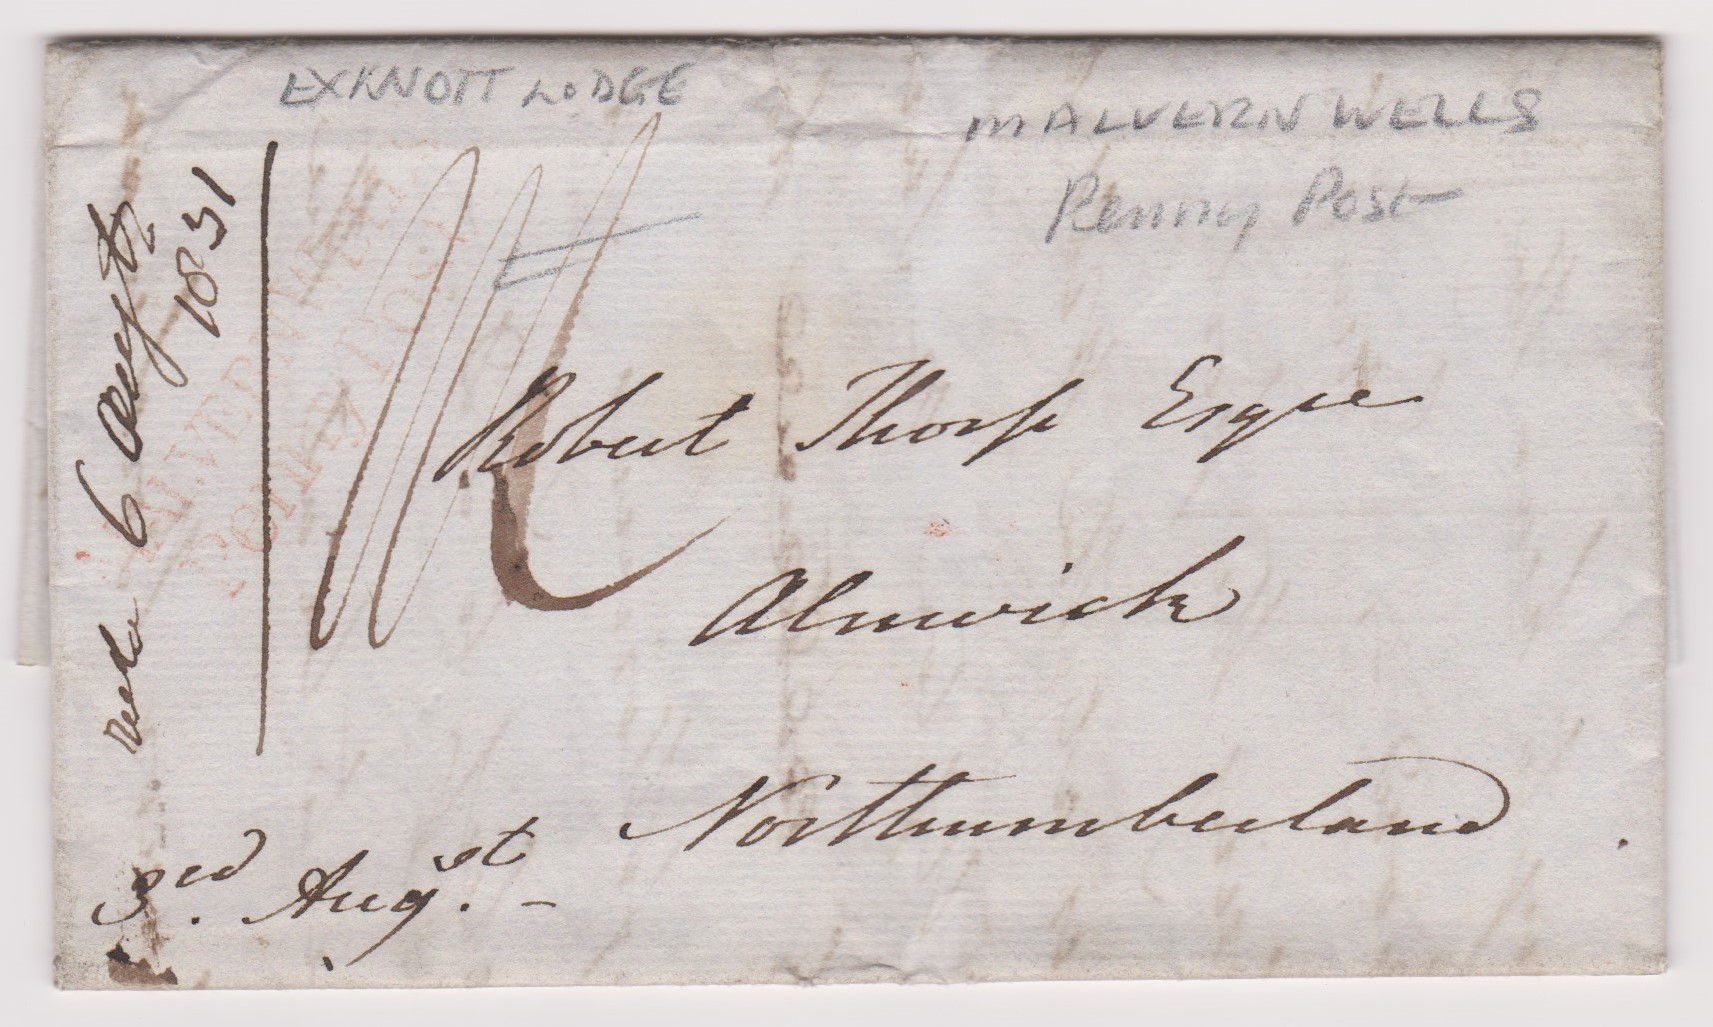 EX KNOTT LODGE
MALVERN WELLS
Penny Post
6 Augst
1831
MALVERN WELLS
Penny Post
Robert Thorp Esqre
Alnwick
Northumberland
3rd. Augst. -